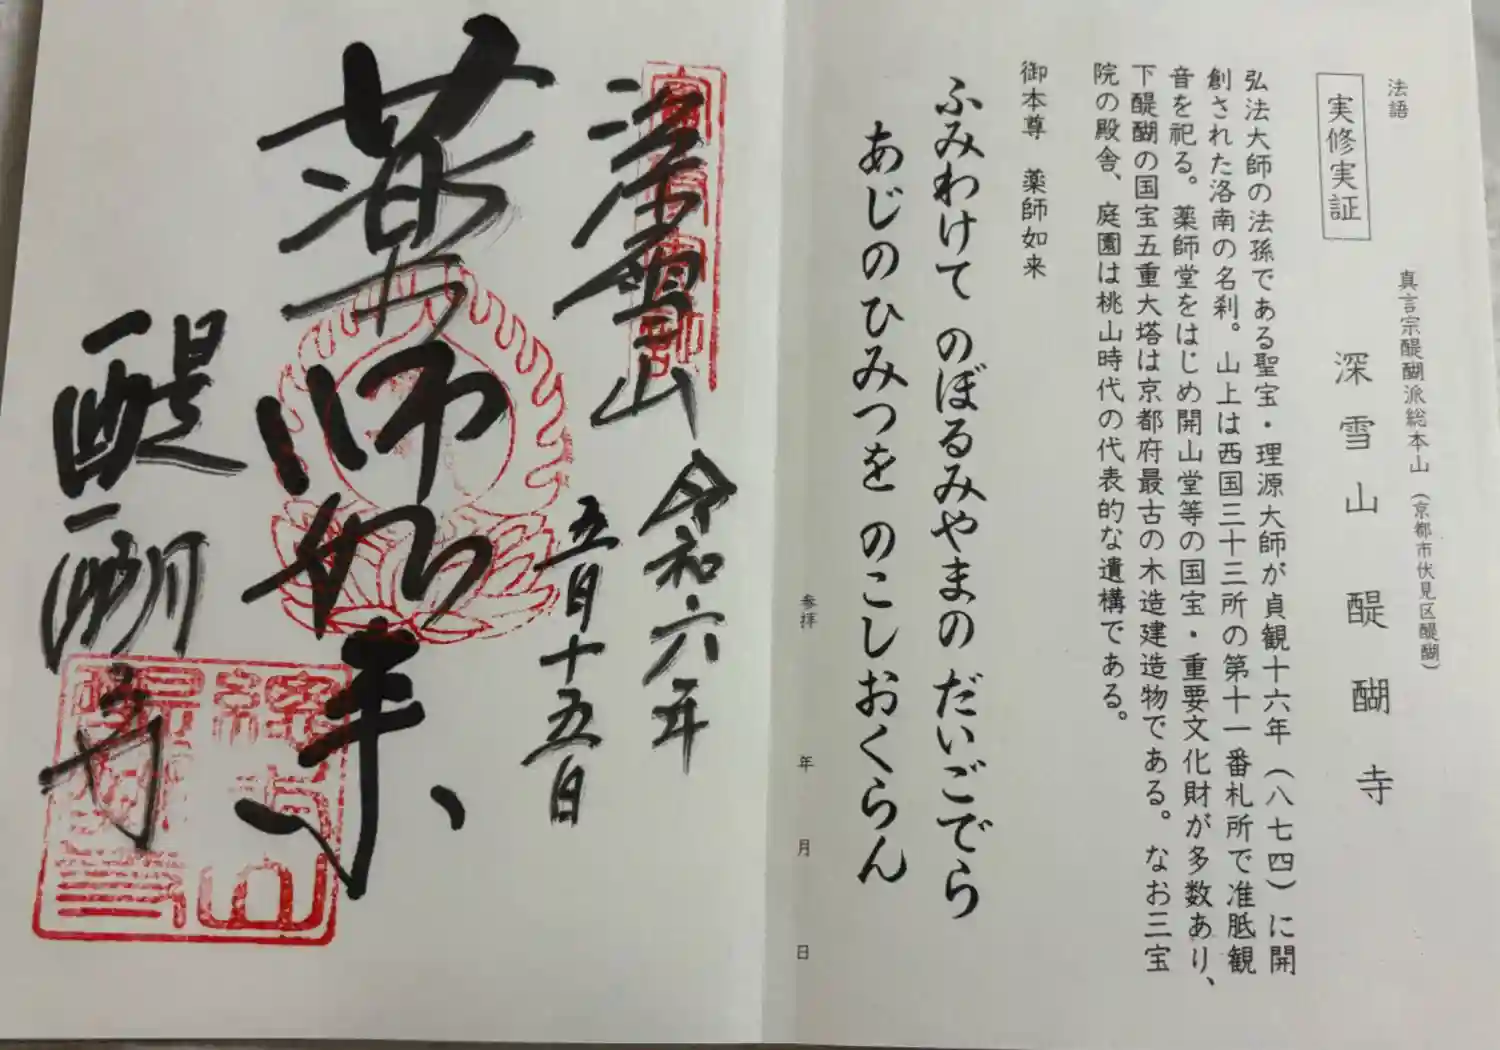 法語
実修実証
真言宗醍醐派総本山（京都市伏見区醍醐）
深雪山 醍醐寺
弘法大師の法孫である聖宝・理源大師が貞観十六年（八七四）に開
創された洛南の名刹。山上は西国三十三所の第十一番札所で准胝観
音を祀る。薬師堂をはじめ開山堂等の国宝・重要文化財が多数あり、
下醍醐の国宝五重大塔は京都府最古の木造建造物である。なお三宝
院の殿舎、庭園は桃山時代の代表的な遺構である。
御本尊 薬師如来
ふみわけて のぼるみやまの だいごでら
あじのひみつを のこしおくらん
参拝 年 月 日
深雪山
令和六年
五月十五日
薬師如来
醍醐寺